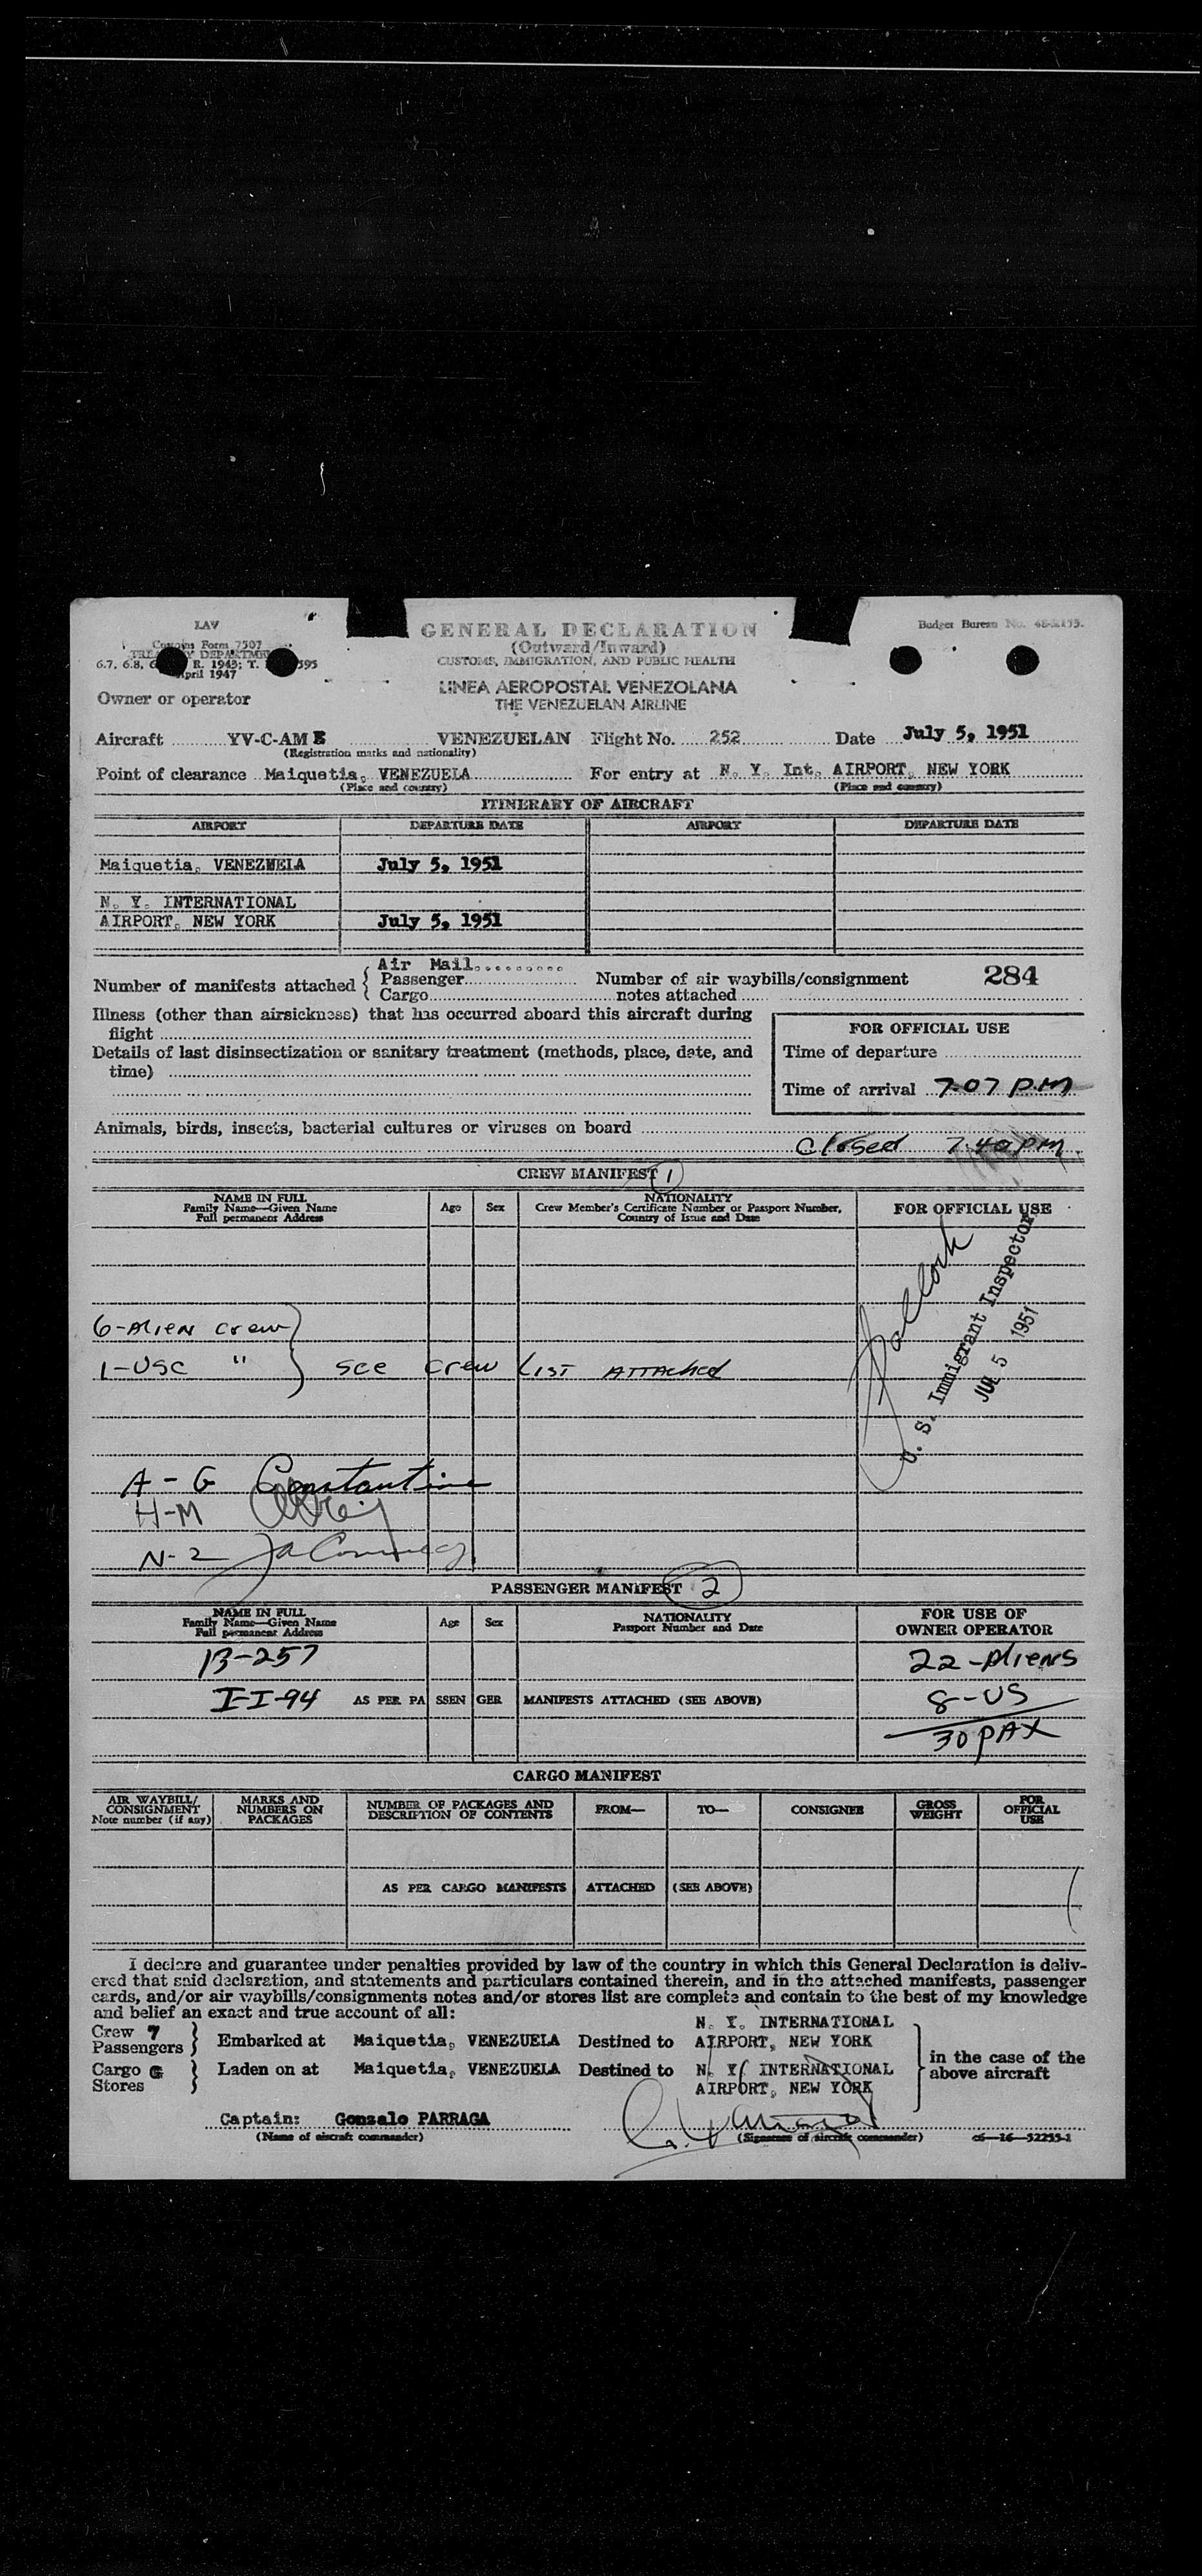 LAV
GENERAL DECLARATION
Budget Bureau No.
(Outward/Inward)
Customs Form 7507
TREASURY DEPARTMENT
CUSTOMS, IMMIGRATION, AND PUBLIC HEALTH
6.7, 6.8, R. 1943; T. 595
April 1947
LINEA AEROPOSTAL VENEZOLANA
THE VENEZUELAN AIRLINE
Owner or operator
Aircraft YV-C-AME VENEZUELAN Flight No. 252 Date July 5, 1951
(Registration marks and nationality)
Point of clearance Maiquetia, VENEZUELA For entry at N. Y. Int. AIRPORT, NEW YORK
(Place and country) (Place and country)
ITINERARY OF AIRCRAFT
AIRPORT DEPARTURE DATE AIRPORT DEPARTURE DATE
Maiquetia, VENEZUELA July 5, 1951
N. Y. INTERNATIONAL
AIRPORT, NEW YORK July 5, 1951
Number of manifests attached { Air Mail.........
Passenger
Cargo
Number of air waybills/consignment
notes attached
284
Illness (other than airsickness) that has occurred aboard this aircraft during
flight
Details of last disinsectization or sanitary treatment (methods, place, date, and
time)
FOR OFFICIAL USE
Time of departure
Time of arrival 7:07 P.M
Animals, birds, insects, bacterial cultures or viruses on board
Closed 7:40 PM.
CREW MANIFEST 1
NAME IN FULL
Family Name—Given Name
Full permanent Address
Age Sex
NATIONALITY
Crew Member's Certificate Number or Passport Number,
Country of Issue and Date
FOR OFFICIAL USE
U. S. Immigrant Inspector
JUL 5 1951
6-Alien crew
1-USC " } see crew List ATTAched
A - G Constantine
H-M
N-Z
PASSENGER MANIFEST 2
NAME IN FULL
Family Name—Given Name
Full permanent Address
Age Sex
NATIONALITY
Passport Number and Date
FOR USE OF
OWNER OPERATOR
B-257 22-Aliens
I-I-94 AS PER PASSENGER MANIFESTS ATTACHED (SEE ABOVE) 8-US
30 PAX
CARGO MANIFEST
AIR WAYBILL/
CONSIGNMENT
Note number (if any)
MARKS AND
NUMBERS ON
PACKAGES
NUMBER OF PACKAGES AND
DESCRIPTION OF CONTENTS
FROM— TO— CONSIGNEE
GROSS
WEIGHT
FOR
OFFICIAL
USE
AS PER CARGO MANIFESTS ATTACHED (SEE ABOVE)
I declare and guarantee under penalties provided by law of the country in which this General Declaration is deliv-
ered that said declaration, and statements and particulars contained therein, and in the attached manifests, passenger
cards, and/or air waybills/consignments notes and/or stores list are complete and contain to the best of my knowledge
and belief an exact and true account of all:
N. Y. INTERNATIONAL
Crew 7
Passengers } Embarked at Maiquetia, VENEZUELA Destined to AIRPORT, NEW YORK
Cargo G
Stores } Laden on at Maiquetia, VENEZUELA Destined to N. Y. INTERNATIONAL
AIRPORT, NEW YORK
in the case of the
above aircraft
Captain: Gonzalo PARRAGA
(Name of aircraft commander) (Signature of aircraft commander) c6—16—52255-1